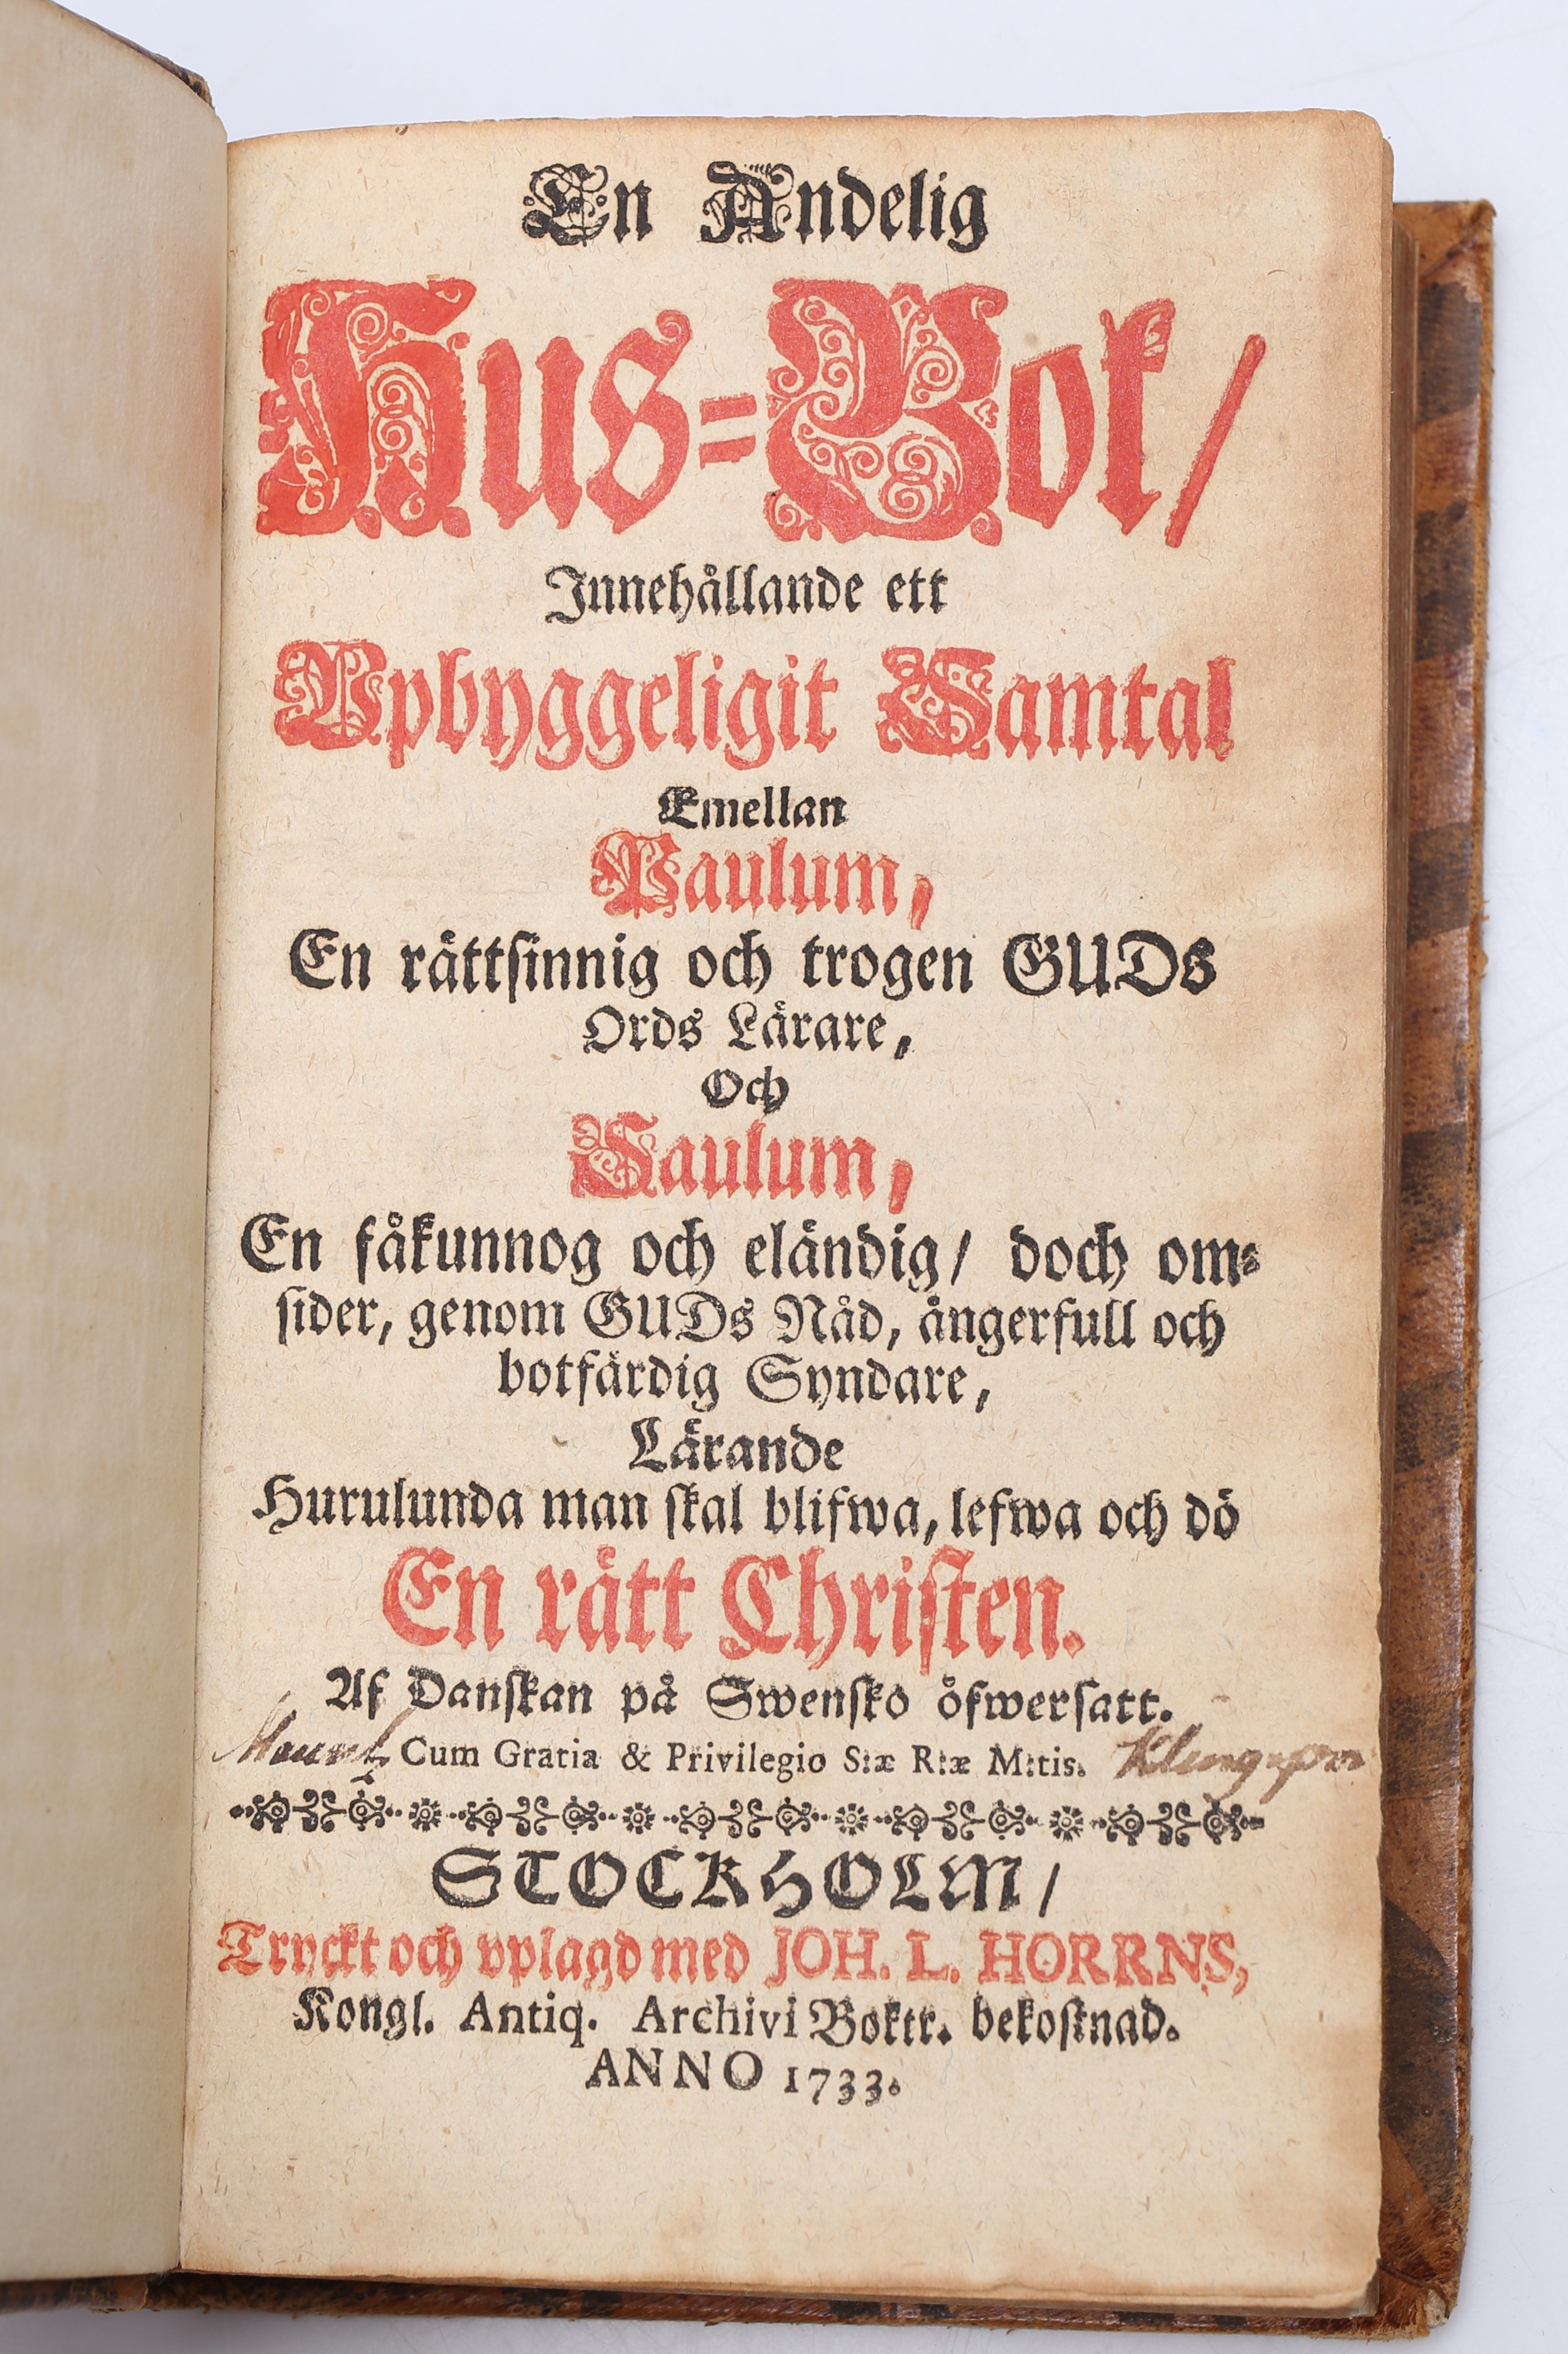 En Andelig
Hus-Bok/
Innehållande ett
Upbyggeligit Samtal
Emellan
Paulum,
En rättsinnig och trogen GUDs
Ords Lärare,
Och
Saulum,
En fåkunnog och eländig/ doch om-
sider, genom GUDs Nåd, ångerfull och
botfärdig Syndare,
Lärande
Hurulunda man skal blifwa, lefwa och dö
En rätt Christen.
Af Danskan på Swensko öfwersatt.
Cum Gratia & Privilegio S:æ R:æ M:tis.
STOCKHOLM/
Tryckt och vplagd med JOH. L. HORRNS,
Kongl. Antiq. Archivi Boktr. bekostnad.
ANNO 1733.